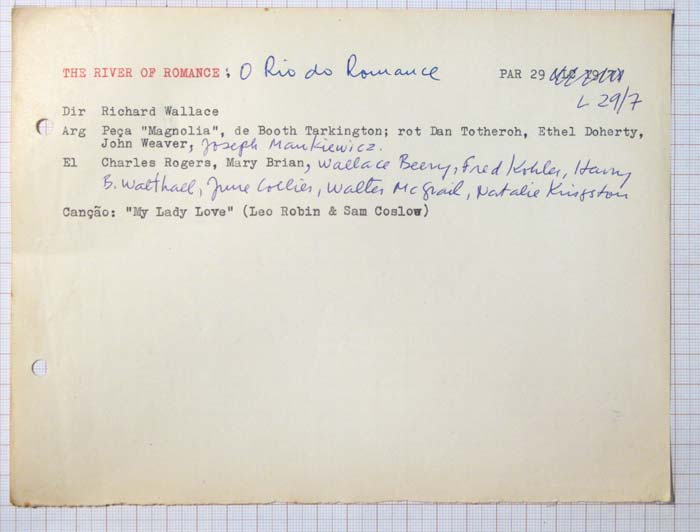 THE RIVER OF ROMANCE: O Rio do Romance PAR 29
L 29/7
Dir Richard Wallace
Arg Peça "Magnolia", de Booth Tarkington; rot Dan Totheroh, Ethel Doherty,
John Weaver, Joseph Mankiewicz.
El Charles Rogers, Mary Brian, Wallace Beery, Fred Kohler, Harry
B. Walthall, June Collier, Walter McGrail, Natalie Kingston
Canção: "My Lady Love" (Leo Robin & Sam Coslow)